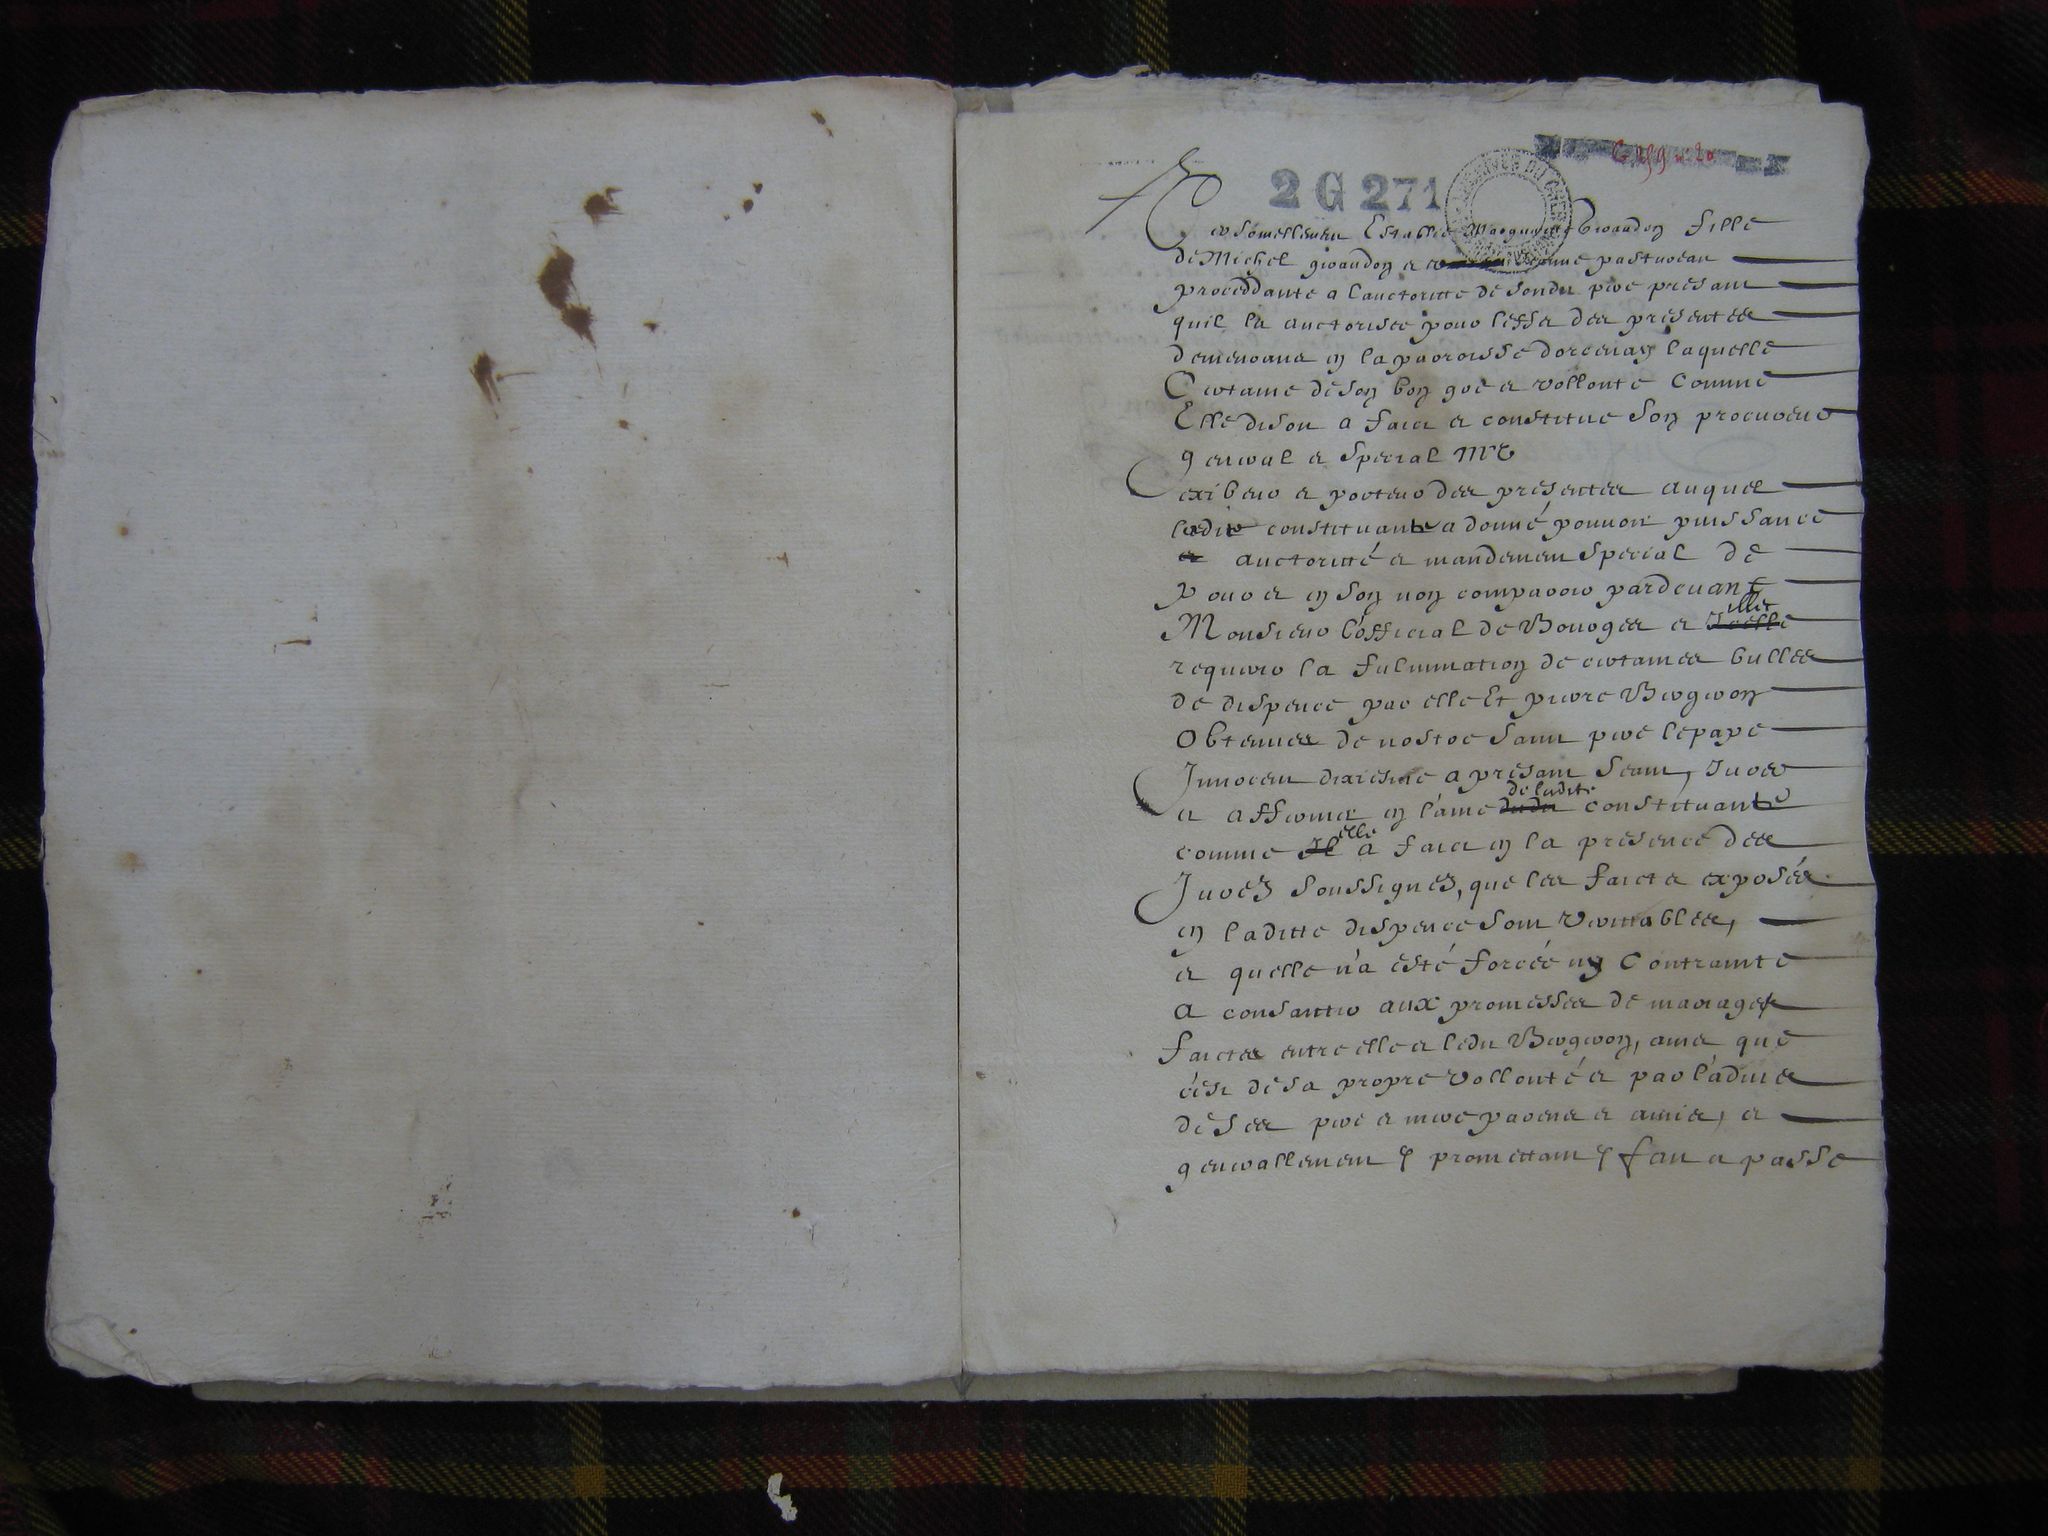 2 G 271
Personellement Establie Marguerite Giraudon fille
de Michel giraudon et Jeanne pastureau
proceddante a lauctoritte de sondit pere presant
quil la auctorisee pour leffet des presentes
demeurant en la parroisse dorcenay laquelle
Certaine de son bon gré et vollonte Comme
Elle disoit a faict et constitue son procureur
general et special Mre
exibeur et porteur des presentes auquel
ladite constituante a donné pouvoir puissance
et auctoritté et mandement special de
pour et en son non comparoir pardevant
Monsieur lofficial de Bourges et illec
requerir la fulmination de certaines bulles
de dispence par elle Et pierre Bergeron
Obtenues de nostre saint pere lepape
Innocent dixiesme a presant seant, Jurer
et affermer en l'ame de ladite constituante
comme elle a faict en la presence des
Jurez soussignez, que les faicts exposés
en laditte dispence sont verittables,
et quelle n'a esté forcée ny Contrainte
a consantir aux promesses de mariage
faictes entre elle et ledit Bergeron, ains que
c'est de sa propre vollonté et par l'advis
de ses pere et mere parens et amis, et
generallement & promettant & fait et passé